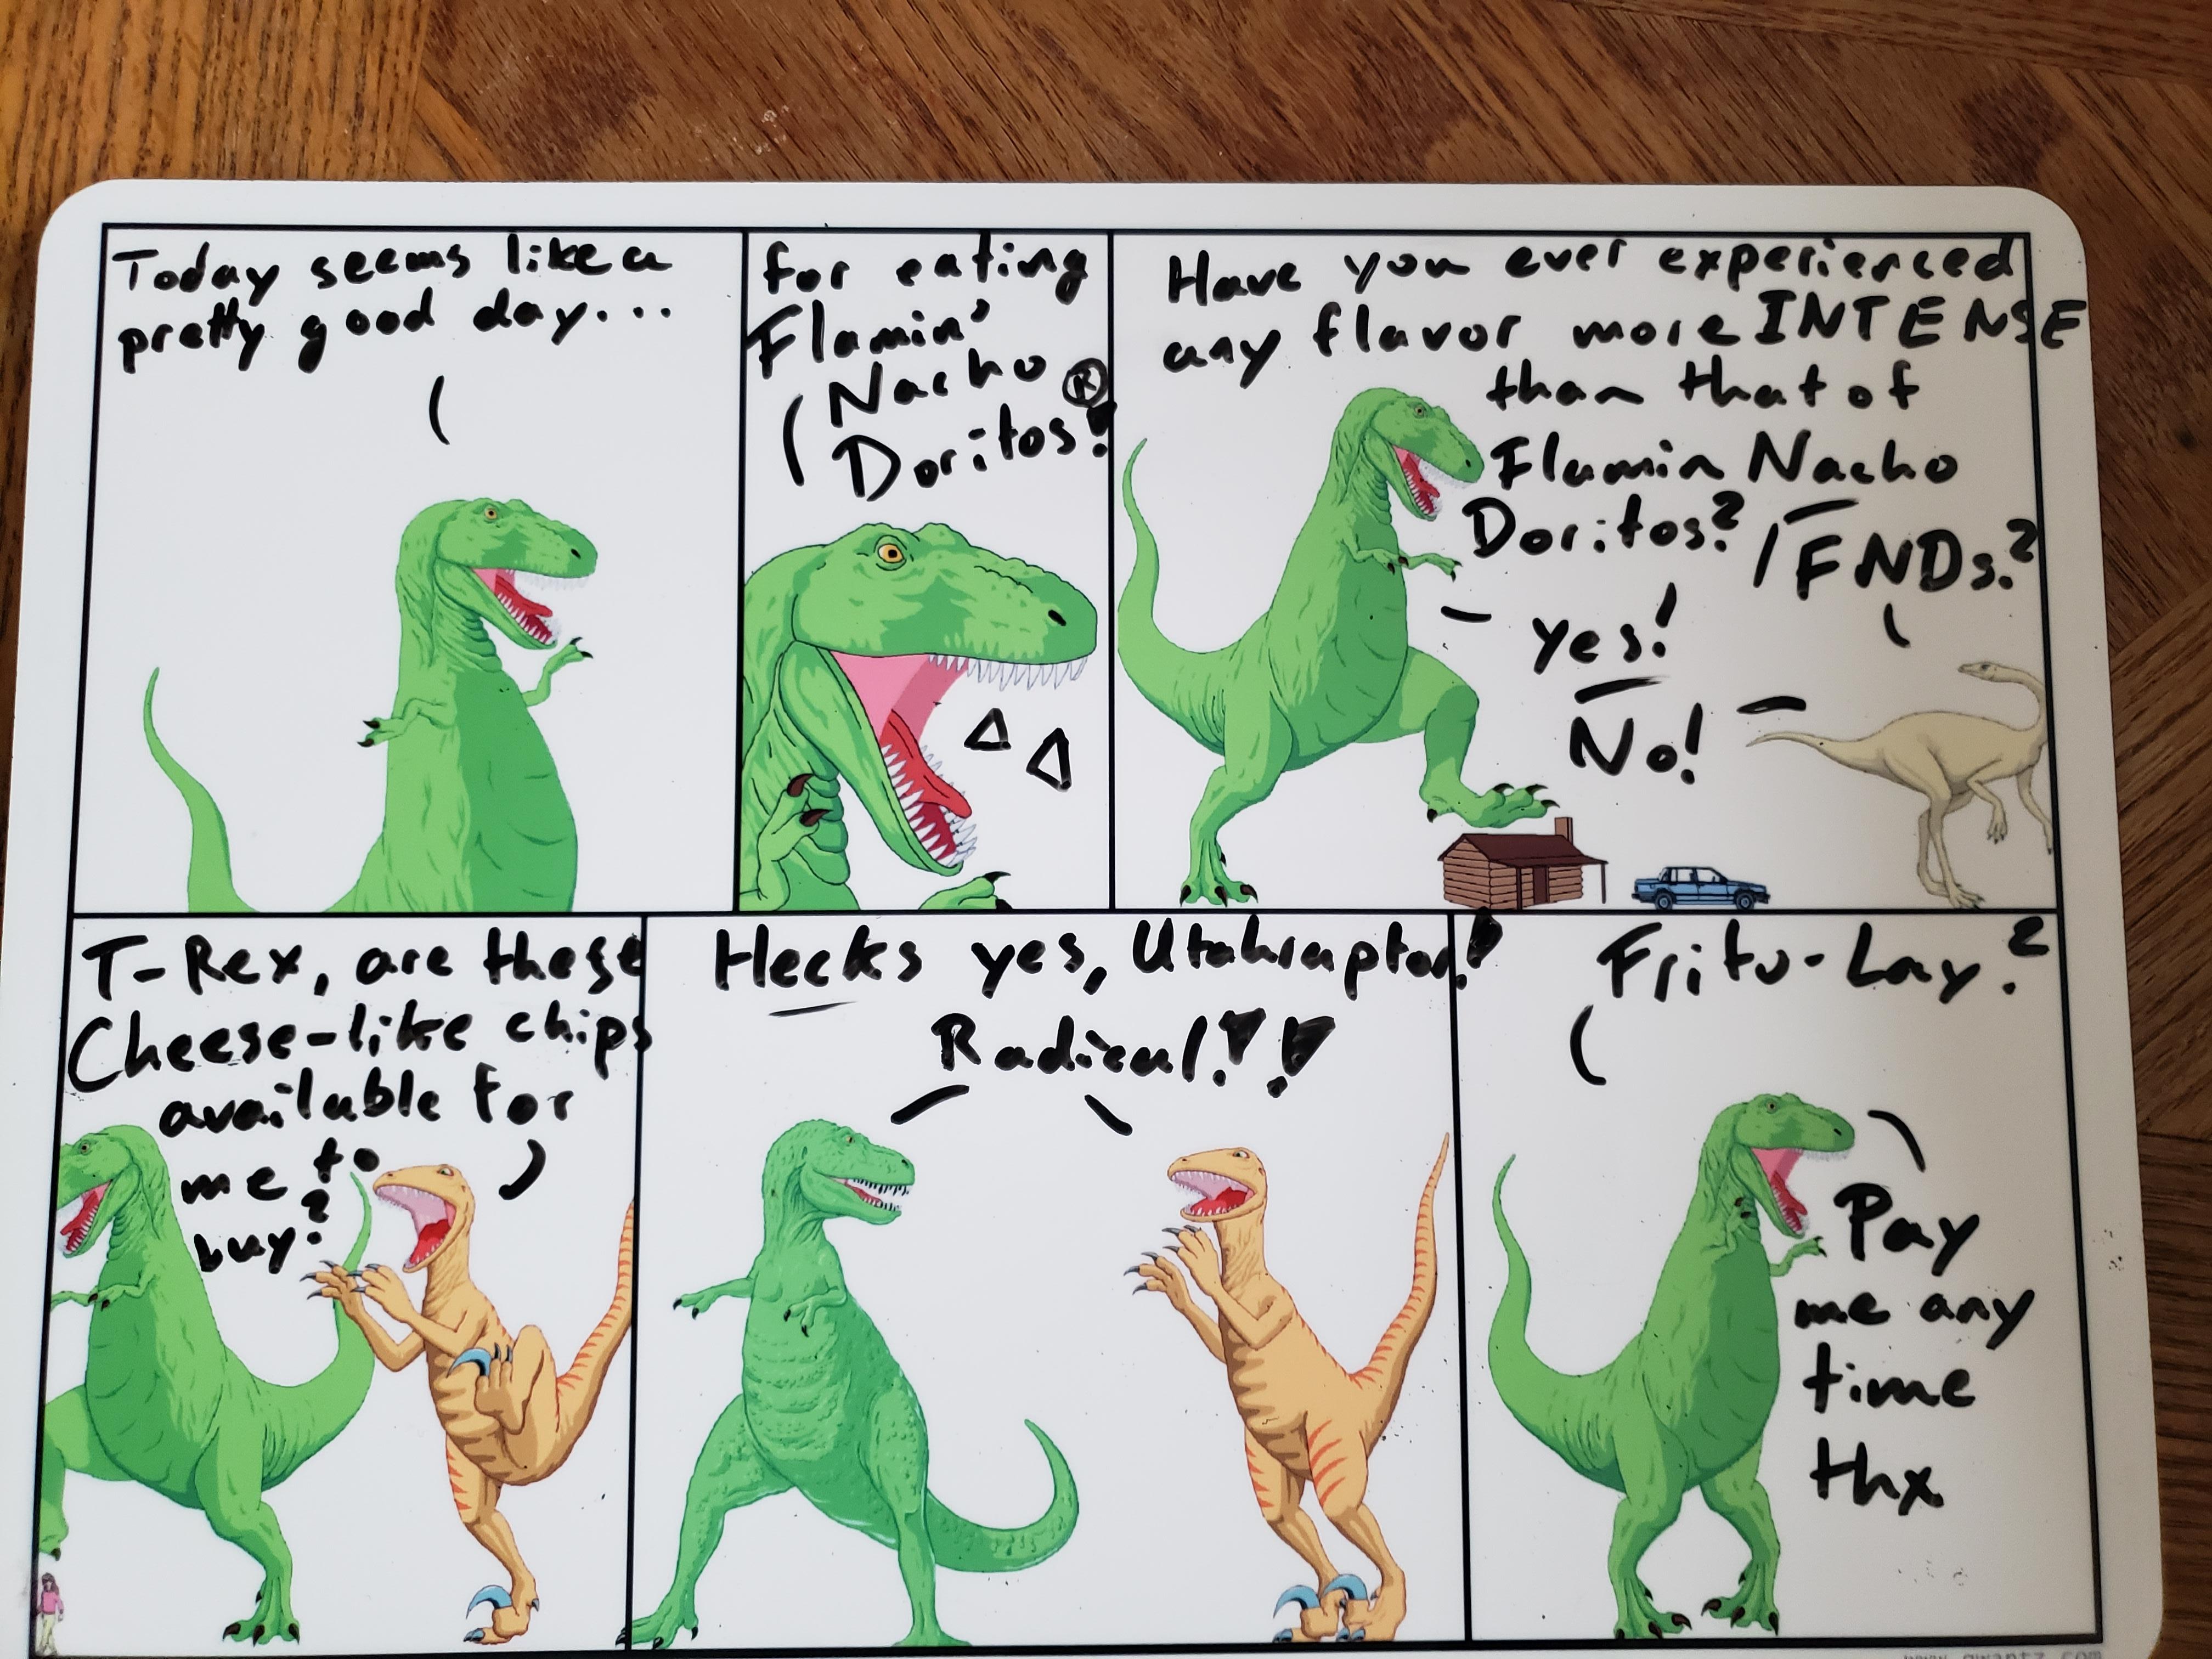 Today seems like a
pretty good day...
for eating
Flamin'
Nacho ®
Doritos!
Have you ever experienced
any flavor more INTENSE
than that of
Flamin Nacho
Doritos?
FNDs?
Yes!
No!
T-Rex, are these
Cheese-like chips
available for
me to
buy?
Hecks yes, Utahraptor!
Radical!!
Frito-Lay?
Pay
me any
time
thx
www.qwantz.com